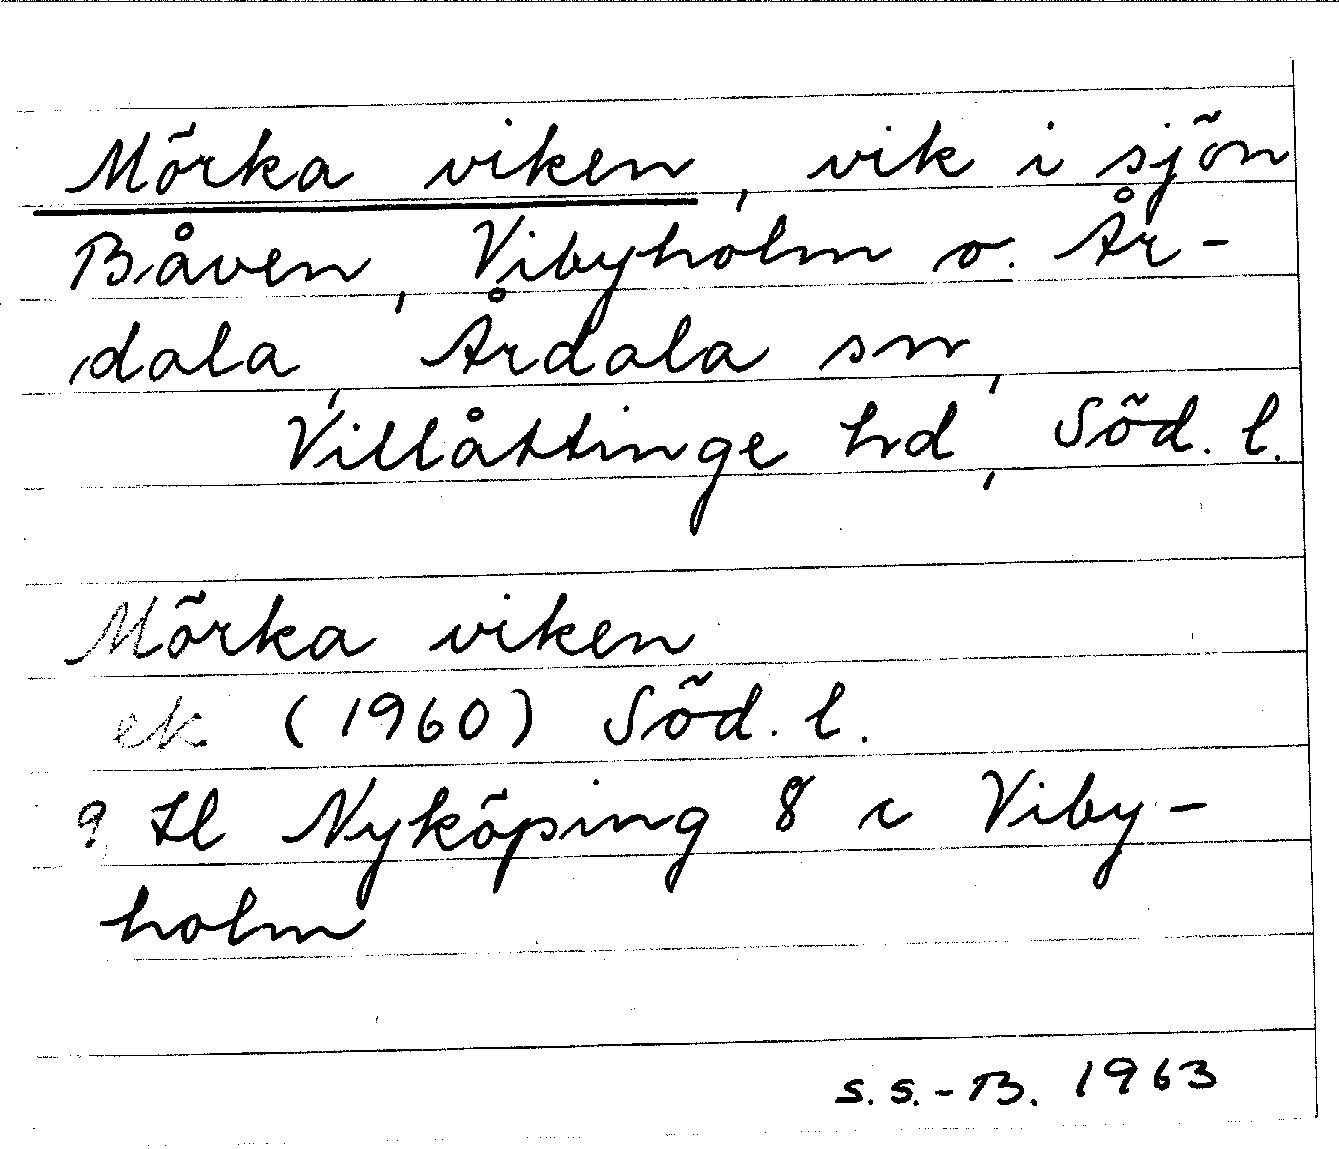 Mörka viken, vik i sjön
Båven, Vibyholm o. År-
dala, Årdala sn,
Villåttinge hd, Söd. l.
Mörka viken
ek (1960) Söd. l.
Hl Nyköping 8 c Viby-
holm
S.S.-B. 1963